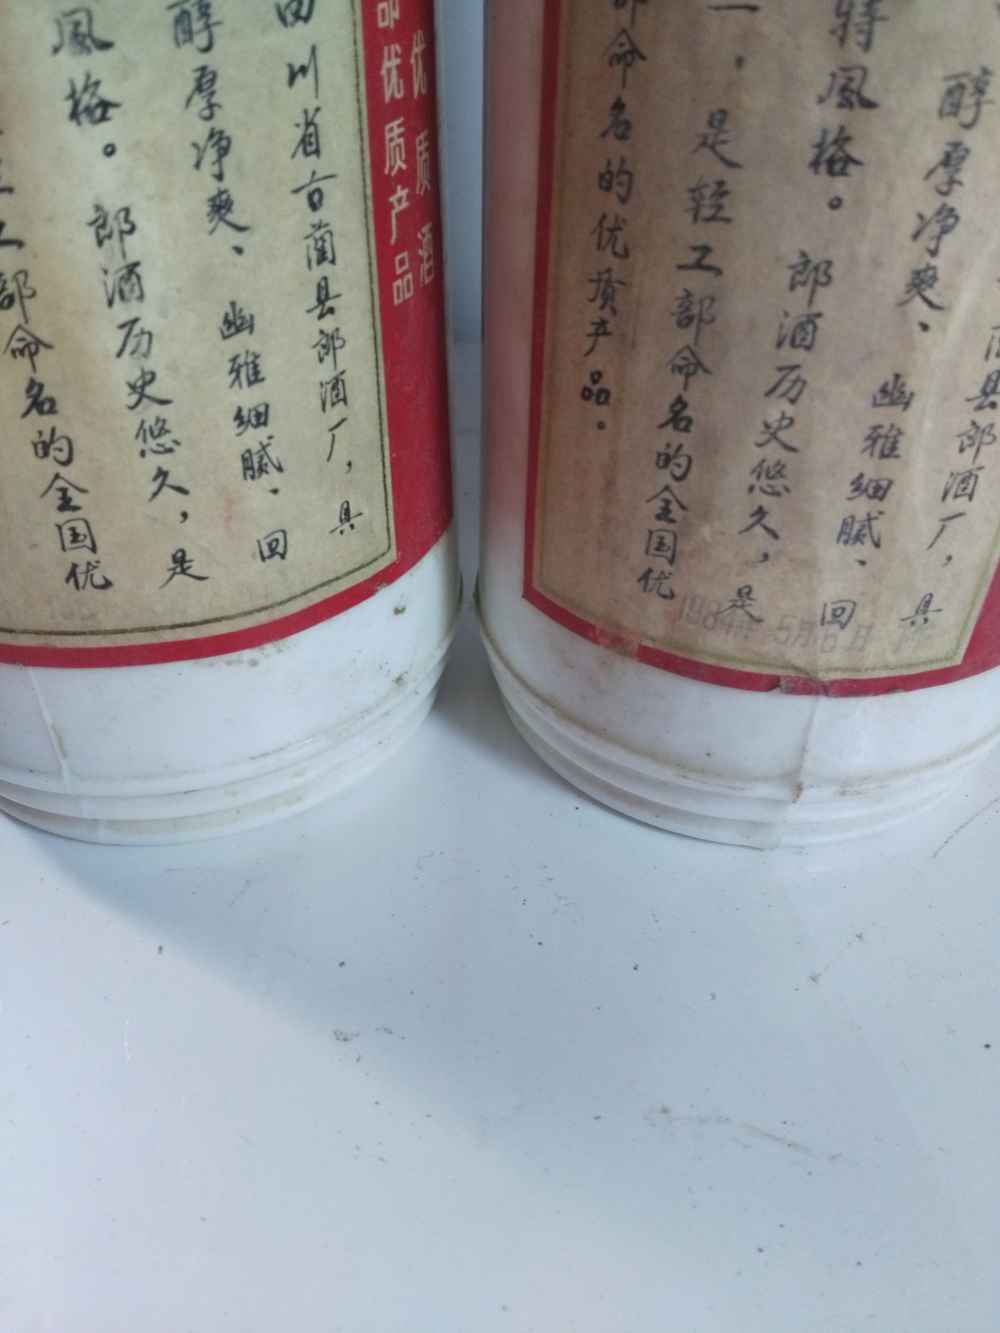 四川省古蔺县郎酒厂，具
醇厚净爽、幽雅细腻、回
風格。郎酒历史悠久，是
工部命名的全国优
部优质产品
优质酒
县郎酒厂，具
醇厚净爽、幽雅细腻、回
特風格。郎酒历史悠久，是
一，是轻工部命名的全国优
命名的优质产品。
1984年5月6日